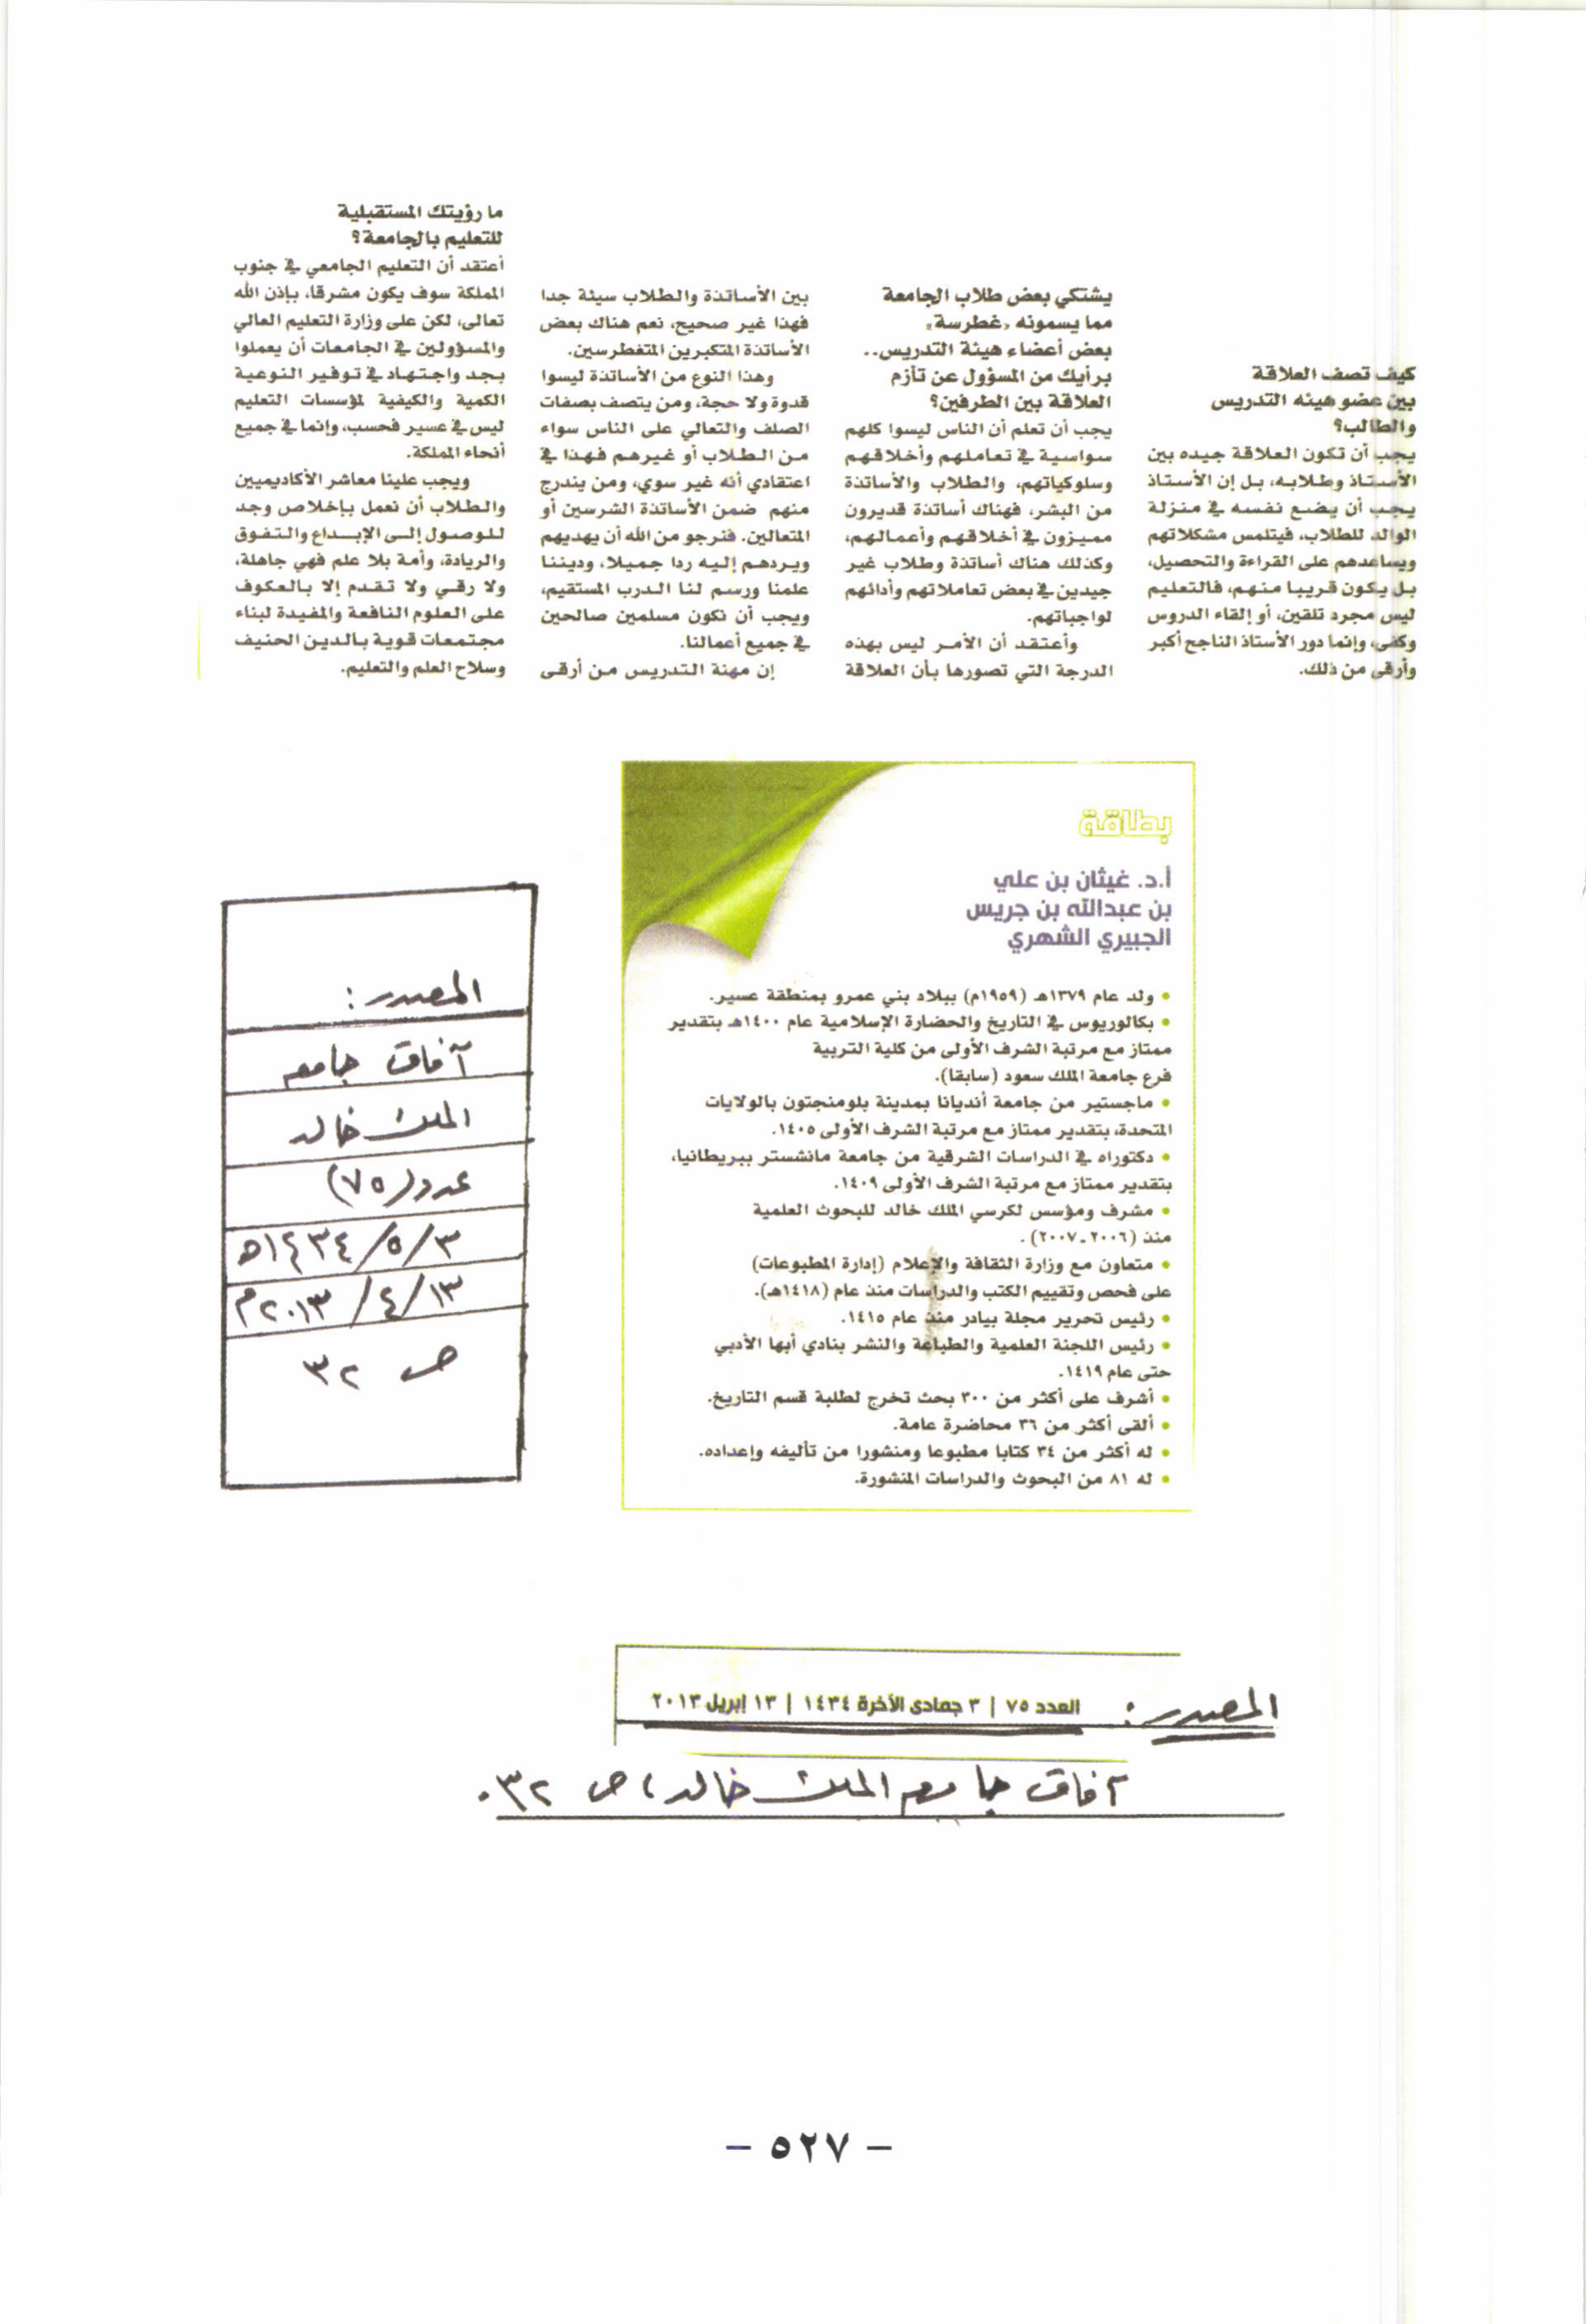 كيف تصف العلاقة
بين عضو هيئه التدريس
والطالب؟
يجب أن تكون العلاقة جيده بين
الأستاذ وطلابه، بل إن الأستاذ
يجب أن يضع نفسه في منزلة
الوالد للطلاب، فيتلمس مشكلاتهم
ويساعدهم على القراءة والتحصيل،
بل يكون قريبا منهم، فالتعليم
ليس مجرد تلقين، أو إلقاء الدروس
وكفى، وإنما دور الأستاذ الناجح أكبر
وأرقى من ذلك.
يشتكي بعض طلاب الجامعة
مما يسمونه «غطرسة»
بعض أعضاء هيئة التدريس..
برأيك من المسؤول عن تأزم
العلاقة بين الطرفين؟
يجب أن تعلم أن الناس ليسوا كلهم
سواسية في تعاملهم وأخلاقهم
وسلوكياتهم، والطلاب والأساتذة
من البشر، فهناك أساتذة قديرون
مميزون في أخلاقهم وأعمالهم،
وكذلك هناك أساتذة وطلاب غير
جيدين في بعض تعاملاتهم وأدائهم
لواجباتهم.
وأعتقد أن الأمر ليس بهذه
الدرجة التي تصورها بأن العلاقة
بين الأساتذة والطلاب سيئة جدا
فهذا غير صحيح، نعم هناك بعض
الأساتذة المتكبرين المتغطرسين.
وهذا النوع من الأساتذة ليسوا
قدوة ولا حجة، ومن يتصف بصفات
الصلف والتعالي على الناس سواء
من الطلاب أو غيرهم فهذا في
اعتقادي أنه غير سوي، ومن يندرج
منهم ضمن الأساتذة الشرسين أو
المتعالين. فنرجو من الله أن يهديهم
ويردهم إليه ردا جميلا، وديننا
علمنا ورسم لنا الدرب المستقيم،
ويجب أن نكون مسلمين صالحين
في جميع أعمالنا.
إن مهنة التدريس من أرقى
ما رؤيتك المستقبلية
للتعليم بالجامعة؟
أعتقد أن التعليم الجامعي في جنوب
المملكة سوف يكون مشرقا، بإذن الله
تعالى، لكن على وزارة التعليم العالي
والمسؤولين في الجامعات أن يعملوا
بجد واجتهاد في توفير النوعية
الكمية والكيفية لمؤسسات التعليم
ليس في عسير فحسب، وإنما في جميع
أنحاء المملكة.
ويجب علينا معاشر الأكاديميين
والطلاب أن نعمل بإخلاص وجد
للوصول إلى الإبداع والتفوق
والريادة، وأمة بلا علم فهي جاهلة،
ولا رقي ولا تقدم إلا بالعكوف
على العلوم النافعة والمفيدة لبناء
مجتمعات قوية بالدين الحنيف
وسلاح العلم والتعليم.
بطاقة
أ.د. غيثان بن علي
بن عبدالله بن جريس
الجبيري الشهري
• ولد عام ١٣٧٩هـ (١٩٥٩م) ببلاد بني عمرو بمنطقة عسير.
• بكالوريوس في التاريخ والحضارة الإسلامية عام ١٤٠٠هـ بتقدير
ممتاز مع مرتبة الشرف الأولى من كلية التربية
فرع جامعة الملك سعود (سابقا).
• ماجستير من جامعة أنديانا بمدينة بلومنجتون بالولايات
المتحدة، بتقدير ممتاز مع مرتبة الشرف الأولى ١٤٠٥.
• دكتوراه في الدراسات الشرقية من جامعة مانشستر ببريطانيا،
بتقدير ممتاز مع مرتبة الشرف الأولى ١٤٠٩.
• مشرف ومؤسس لكرسي الملك خالد للبحوث العلمية
منذ (٢٠٠٦-٢٠٠٧) .
• متعاون مع وزارة الثقافة والإعلام (إدارة المطبوعات)
على فحص وتقييم الكتب والدراسات منذ عام (١٤١٨هـ).
• رئيس تحرير مجلة بيادر منذ عام ١٤١٥.
• رئيس اللجنة العلمية والطباعة والنشر بنادي أبها الأدبي
حتى عام ١٤١٩.
• أشرف على أكثر من ٣٠٠ بحث تخرج لطلبة قسم التاريخ.
• ألقى أكثر من ٣٦ محاضرة عامة.
• له أكثر من ٣٤ كتابا مطبوعا ومنشورا من تأليفه وإعداده.
• له ٨١ من البحوث والدراسات المنشورة.
المصدر:
آفاق جامعة
الملك خالد
عدد (٧٥)
٣/٥/١٤٣٤هـ
١٣/٤/٢٠١٣م
ص ٣٢
المصدر: العدد ٧٥ | ٣ جمادى الآخرة ١٤٣٤ | ١٣ إبريل ٢٠١٣
آفاق جامعة الملك خالد، ص ٣٢.
- ٥٢٧ -